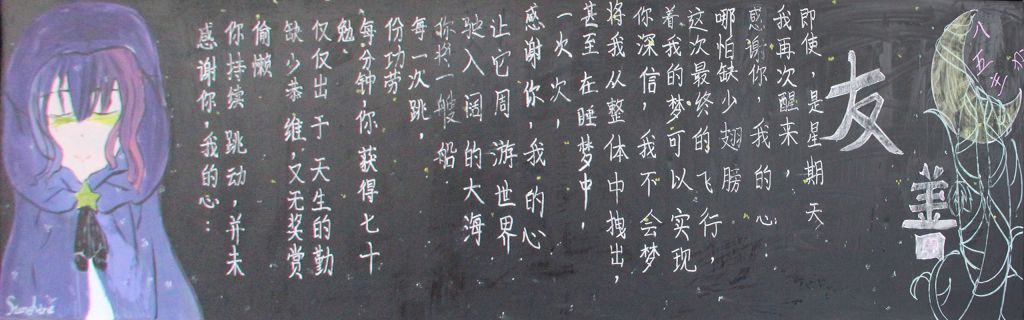 感谢你,我的心:
你持续跳动,并未
偷懒
缺少恭维,又无奖赏
仅仅出于天生的勤
勉
每分钟,你获得七十
份功劳
每一次跳,
你将一艘船
驶入阔的大海
让它周游世界
感谢你,我的心
一次次,
甚至在睡梦中,
将我从整体中拽出,
你深信,我不会梦
着我的梦可以实现
这次最终的飞行,
哪怕缺少翅膀
感谢你,我的心
我再次醒来,
即使,是星期天,
友善